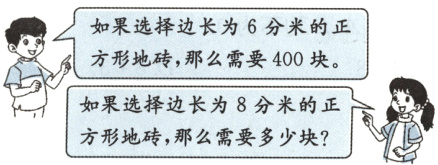 如果选择边长为 6 分米的正
方形地砖,那么需要 400 块。
如果选择边长为 8 分米的正
方形地砖,那么需要多少块?